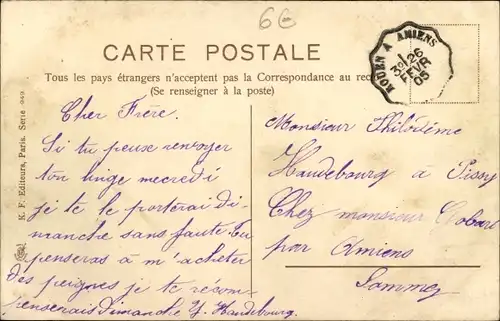 6€
CARTE POSTALE
Tous les pays étrangers n'acceptent pas la Correspondance au rec
(Se renseigner à la poste)
ROUEN A AMIENS
26
FEVR
05
K. F. Editeurs, Paris. Serie 949.
Cher Frère.
Si tu peux renvoyer
ton linge mecredi
je te le porterai di-
manche sans faute. tu
penseras à m'acheter
des peignes je te recom
penserais dimanche Y. Haudebourg.
Monsieur Philodème
Haudebourg à Pissy
Chez monsieur Gobart
par Amiens
Somme